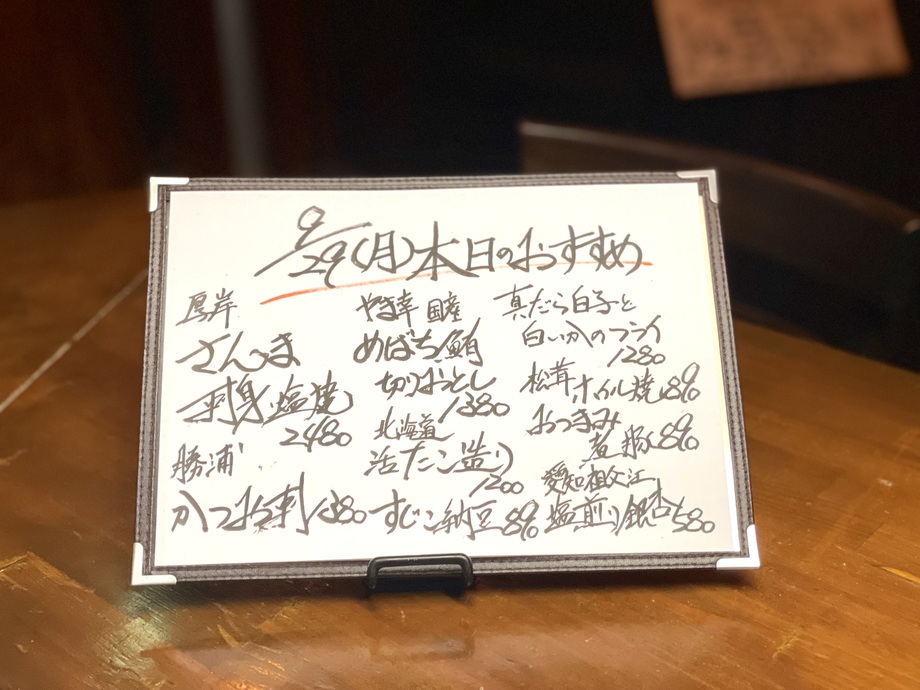 9/29(月)本日のおすすめ
厚岸
さんま
刺身・塩焼
2480
勝浦
かつお刺 1380
やま幸 国産
めばち鮪
切りおとし
1380
北海道
活たこ造り
1200
すじこ納豆 890
真だら白子と
白いかのフライ
1280
松茸ホイル焼 1890
おつまみ
煮豚 890
愛知祖父江
塩煎り銀杏 580